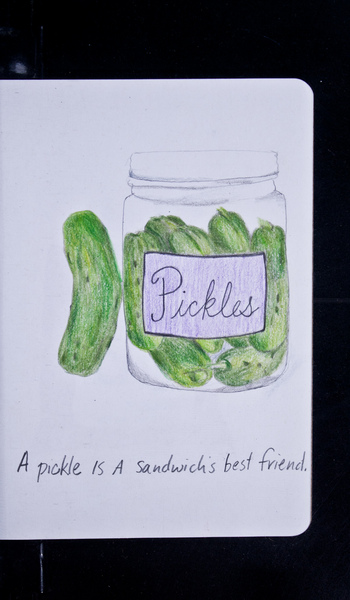 Pickles
A pickle is A sandwich's best friend.